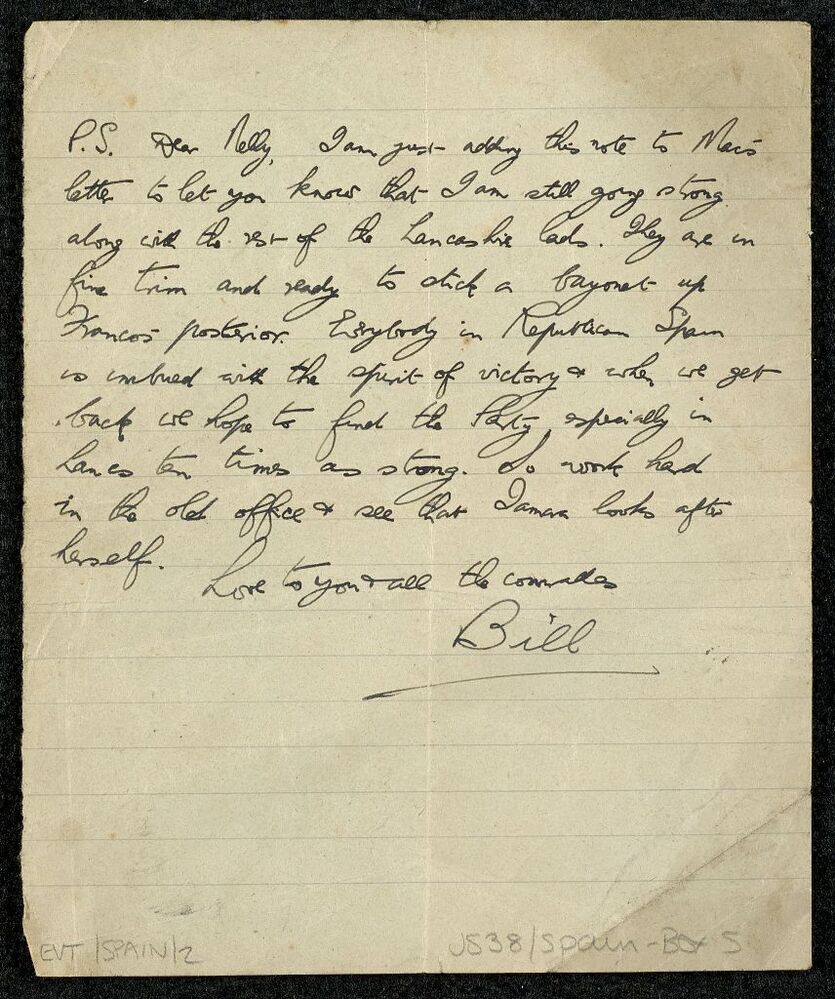 P.S. Dear Nelly, I am just adding this note to Mac's
letter to let you know that I am still going strong
along with the rest of the Lancashire lads. They are in
fine trim and ready to stick a bayonet up
Franco's posterior. Everybody in Republican Spain
is imbued with the spirit of victory & when we get
back we hope to find the Party, especially in
Lancs ten times as strong. So work hard
in the old office & see that Tamara looks after
herself.
Love to you & all the comrades
Bill
EVT/SPAIN/2
JS38/Spain-Box 5